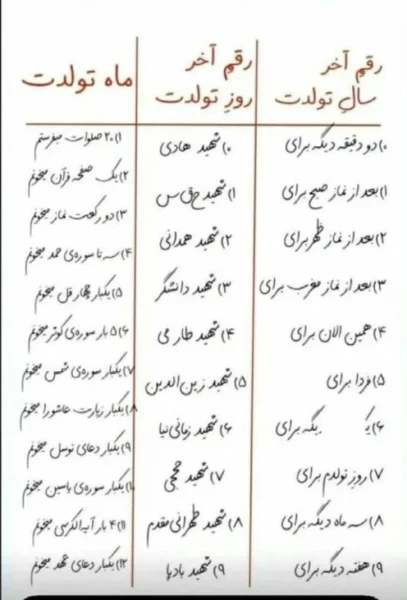 رقم آخر
سال تولدت
۰) دو دقیقه دیگه برای
۱) بعد از نماز صبح برای
۲) بعد از نماز ظهر برای
۳) بعد از نماز مغرب برای
۴) همین الان برای
۵) فردا برای
۶) برای
۷) روز تولدم برای
۸) سه ماه دیگه برای
۹) هفته دیگه برای
رقم آخر
روز تولدت
۰) شهید هادی
۱) شهید
۲) شهید همدانی
۳) شهید دانشگر
۴) شهید طارمی
۵) شهید زین الدین
۶) شهید زمانی نیا
۷) شهید حججی
۸) شهید طهرانی مقدم
۹) شهید بادپا
ماه تولدت
۱) ۲۰ صلوات میفرستم
۲) یک صفحه قرآن میخونم
۳) دو رکعت نماز میخونم
۴) سه تا سوره‌ی حمد میخونم
۵) یکبار چهار قل میخونم
۶) ۵ بار سوره‌ی کوثر میخونم
۷) یکبار سوره‌ی شمس میخونم
۸) یکبار زیارت عاشورا میخونم
۹) یکبار دعای توسل میخونم
یکبار سوره‌ی یاسین میخونم
۱۱) ۴ بار آیه الکرسی میخونم
۱۲) یکبار دعای عهد میخونم